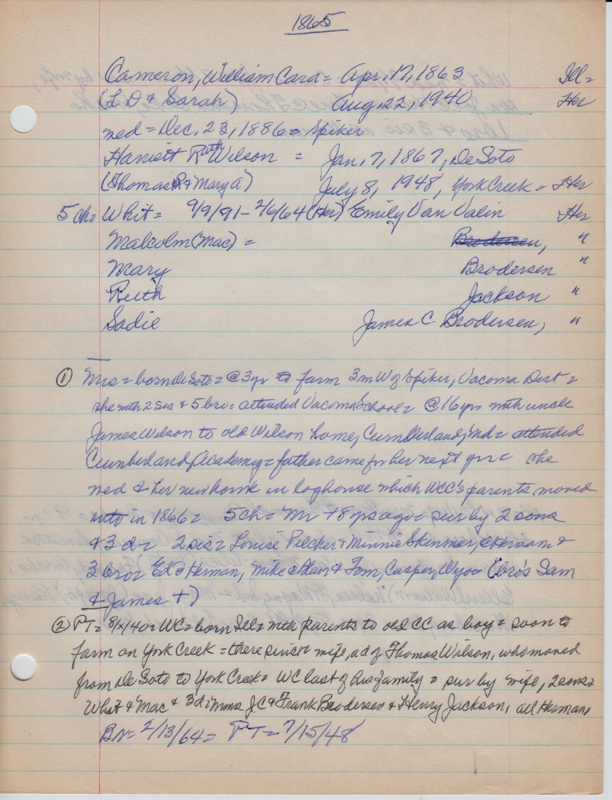 1865
Cameron, William Cara = Apr. 17, 1863 Ill =
(L D & Sarah) Aug. 22, 1940 Her
med = Dec. 23, 1886 = Spiker
Harriett Ruth Wilson = Jan. 7, 1867, DeSoto
(Thomas R & Mary A) July 8, 1948, York Creek = Her
5 ch = Whit = 9/9/91 - 2/6/64 (Her) Emily Van Valin Her
Malcolm (Mac) = Brodersen, "
Mary Brodersen "
Ruth Jackson "
Sadie James C Brodersen, "
① Mrs = born DeSoto = @ 3 yr to farm 3 m W of Spiker, Vacoma Dist =
she with 2 sis & 5 bro = attended Vacoma School = @ 16 yrs with uncle
James Wilson to old Wilson home, Cumberland, Ind = attended
Cumberland Academy = father came for her next yr = she
med & her new home in loghouse which WCC's parents moved
into in 1866 = 5 ch = Mr + 8 yrs ago = sur by 2 sons
& 3 d = 2 sis = Louise Pilcher & Minnie Skinner, Herman &
3 bro = Ed = Herman, Mike = Blair & Tom, Casper, Wyo (bro's Sam
& James +)
② PT = 8/ /40 = WC = born Ill = with parents to old CC as boy = soon to
farm on York Creek = there since = wife, a d of Thomas Wilson, who moved
from DeSoto to York Creek = WC last of his family = sur by wife, 2 sons =
Whit & Mac & 3 d = Mmes J C & Frank Brodersen & Henry Jackson, all Herman
BN = 2/13/64 = PT = 7/15/48